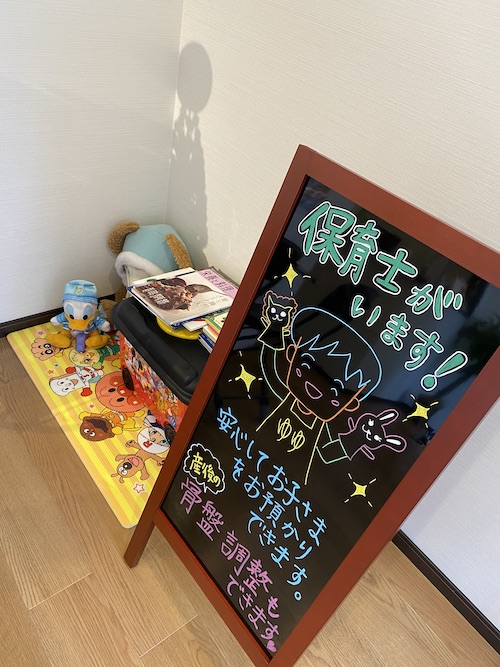 保育士が
います!
ゆゆ
安心してお子さま
をお預かり
できます。
産後の
骨盤調整も
できます